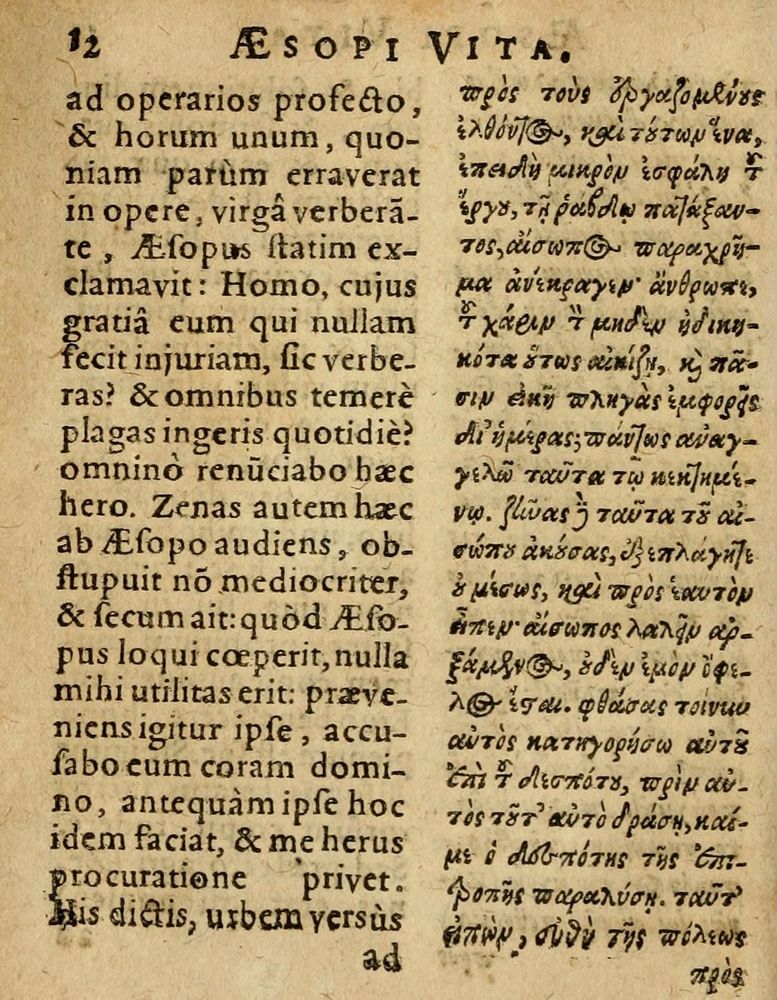 12 ÆSOPI VITA.
ad operarios profecto,
& horum unum, quo-
niam parùm erraverat
in opere, virgâ verberā-
te, Æſopus ſtatim ex-
clamavit: Homo, cujus
gratiâ eum qui nullam
fecit injuriam, ſic verbe-
ras? & omnibus temerè
plagas ingeris quotidiè?
omninò renūciabo hæc
hero. Zenas autem hæc
ab Æſopo audiens, ob-
ſtupuit nō mediocriter,
& ſecum ait: quòd Æſo-
pus loqui cœperit, nulla
mihi utilitas erit: præve-
niens igitur ipſe, accu-
ſabo eum coram domi-
no, antequàm ipſe hoc
idem faciat, & me herus
procuratione privet.
His dictis, urbem versùs
ad
πρὸς τοὺς ἐργαζομένους
ἐλθόντος, καὶ τούτων ἕνα,
ἐπειδὴ μικρὸν ἐσφάλη τοῦ
ἔργου, τῇ ῥάβδῳ πατάξαν-
τος, αἴσωπος παραχρῆ-
μα ἀνέκραγεν· ἄνθρωπε,
τοῦ χάριν τὸν μηδὲν ἠδικη-
κότα οὕτως αἰκίζῃ, καὶ πᾶ-
σιν εἰκῆ πληγὰς ἐμφορεῖς
δι' ἡμέρας; πάντως ἀναγ-
γελῶ ταῦτα τῷ κεκτημέ-
νῳ. ζηνᾶς δὲ ταῦτα τοῦ αἰ-
σώπου ἀκούσας, ἐξεπλάγη τε
οὐ μέσως, καὶ πρὸς ἑαυτὸν
εἶπεν· αἴσωπος λαλεῖν ἀρ-
ξάμενος, οὐδὲν ἐμὸν ὄφε-
λος ἔσαι. φθάσας τοίνυν
αὐτὸς κατηγορήσω αὐτοῦ
ἐπὶ τοῦ δεσπότου, πρὶν αὐ-
τὸς τοῦτ' αὐτὸ δράσῃ, καί-
με ὁ δεσπότης τῆς ἐπι-
τροπῆς παραλύσῃ. ταῦτ'
εἰπὼν, εὐθὺ τῆς πόλεως
πρὸς